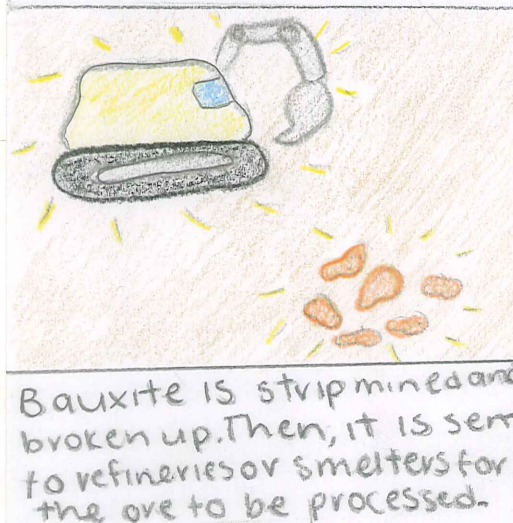 Bauxite is strip mined and
broken up. Then, it is sent
to refineries or smelters for
the ore to be processed.